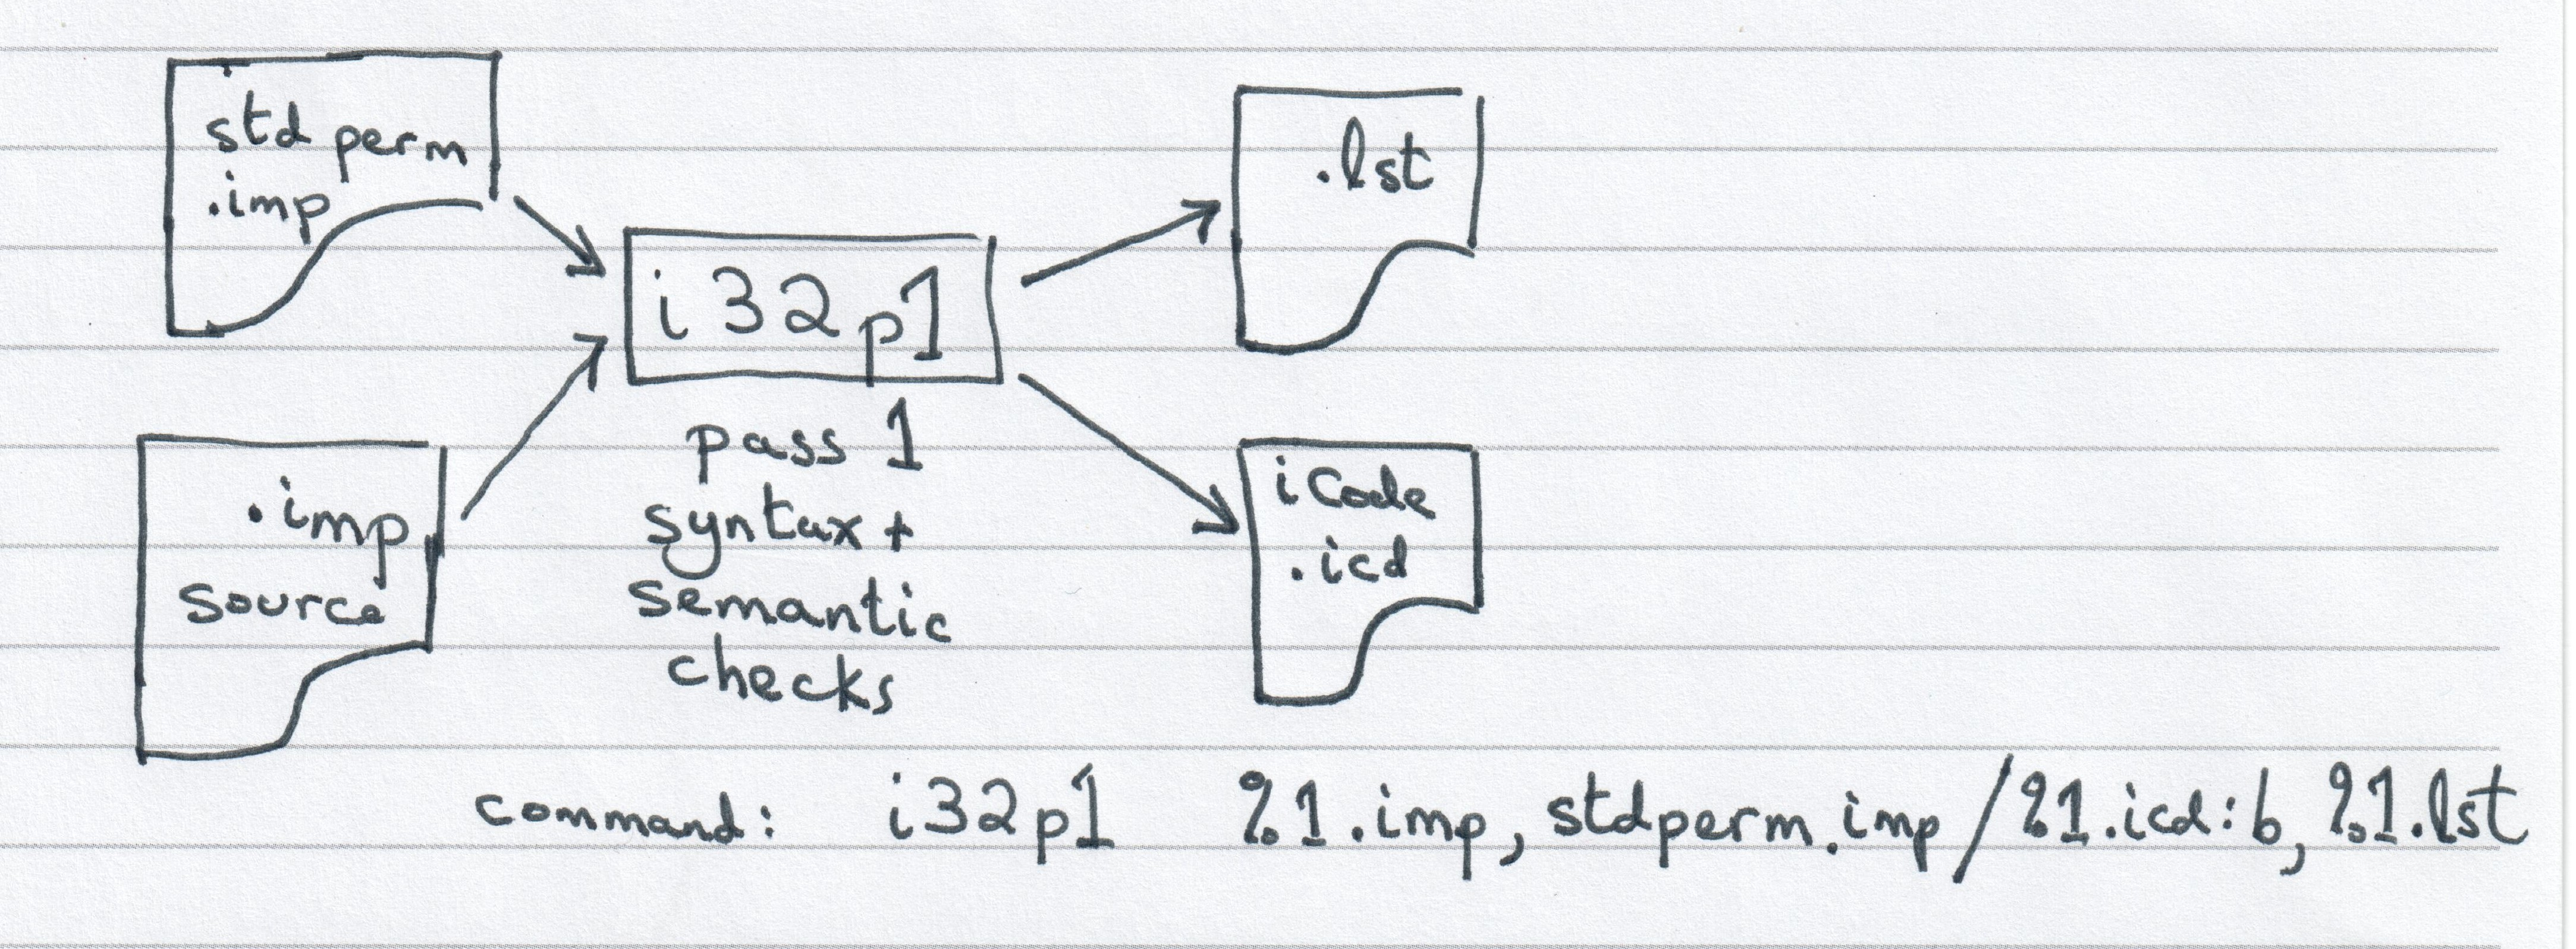 std perm
.imp
.imp
source
i32p1
pass 1
syntax +
semantic
checks
.lst
iCode
.icd
command: i32p1 %1.imp, stdperm.imp/%1.icd:b, %1.lst